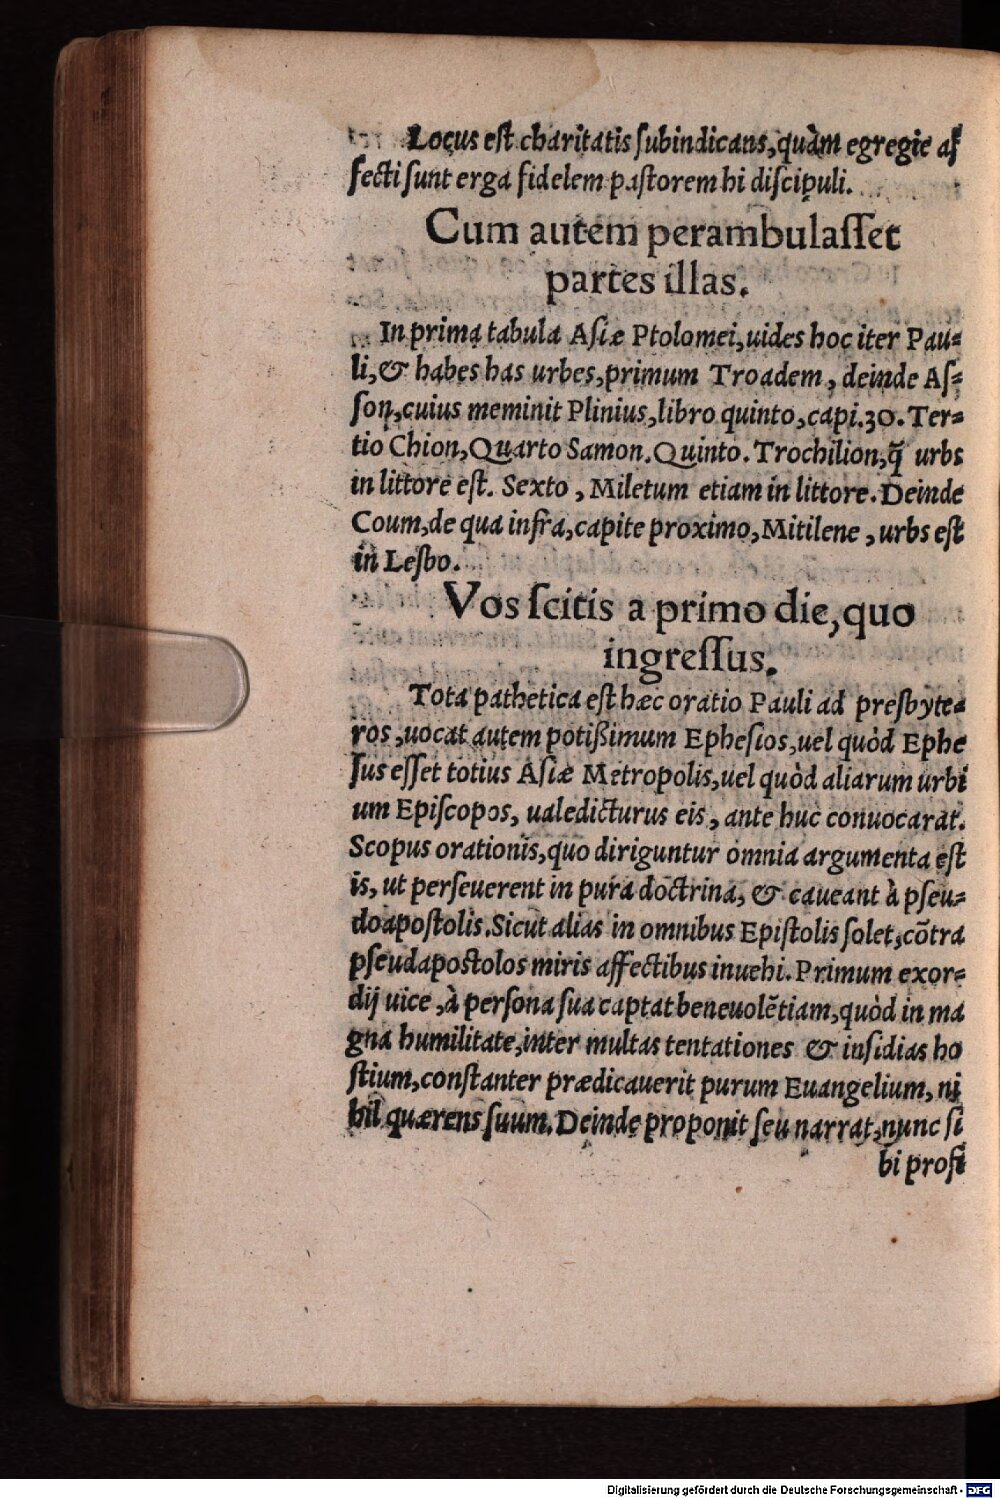 Locus est charitatis subindicans, quàm egregie af
fecti sunt erga fidelem pastorem hi discipuli.
Cum autem perambulasset
partes illas.
In prima tabula Asiæ Ptolomei, uides hoc iter Pau-
li, & habes has urbes, primum Troadem, deinde As-
son, cuius meminit Plinius, libro quinto, capi. 30. Ter-
tio Chion, Quarto Samon. Quinto. Trochilion, q̃ urbs
in littore est. Sexto, Miletum etiam in littore. Deinde
Coum, de qua infra, capite proximo, Mitilene, urbs est
in Lesbo.
Vos scitis a primo die, quo
ingressus.
Tota pathetica est hæc oratio Pauli ad presbyte-
ros, uocat autem potißimum Ephesios, uel quòd Ephe
sus esset totius Asiæ Metropolis, uel quòd aliarum urbi
um Episcopos, ualedicturus eis, ante huc conuocarat.
Scopus orationis, quo diriguntur omnia argumenta est
is, ut perseuerent in pura doctrina, & caueant à pseu-
doapostolis. Sicut alias in omnibus Epistolis solet, cõtra
pseudapostolos miris affectibus inuehi. Primum exor-
dij uice, à persona sua captat beneuolẽtiam, quòd in ma
gna humilitate, inter multas tentationes & insidias ho
stium, constanter prædicauerit purum Euangelium, ni
hil quærens suum. Deinde proponit seu narrat, nunc si
bi profi
Digitalisierung gefördert durch die Deutsche Forschungsgemeinschaft - DFG